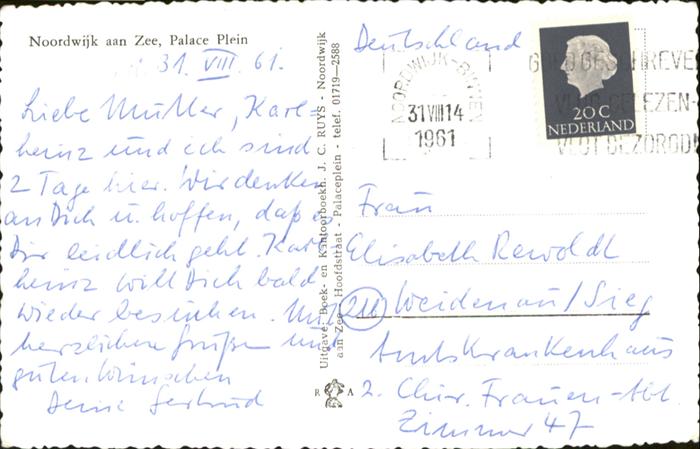 Noordwijk aan Zee, Palace Plein
31. VIII 61.
Liebe Mutter, Karl-
heinz und ich sind
2 Tage hier. Wir denken
an Dich u. hoffen, daß es
Dir leidlich geht. Karl-
heinz will Dich bald
wieder besuchen. Mit
herzlichen Grüßen und
guten Wünschen
Deine Gertrud
Uitgave: Boek- en Kantoorboekh. J. C. RUYS - Noordwijk
aan Zee - Hoofdstraat - Palaceplein - telef. 01719-2588
R A
Deutschland
NOORDWIJK-BINNEN
31 VIII 14
1961
GOED GESCHREVEN
VLUG GELEZEN-
VLOT BEZORGD
20 C
NEDERLAND
Frau
Elisabeth Rewoldt
(21) Weidenau/Sieg
Amtskrankenhaus
2. Chir. Frauen-Abt.
Zimmer 47